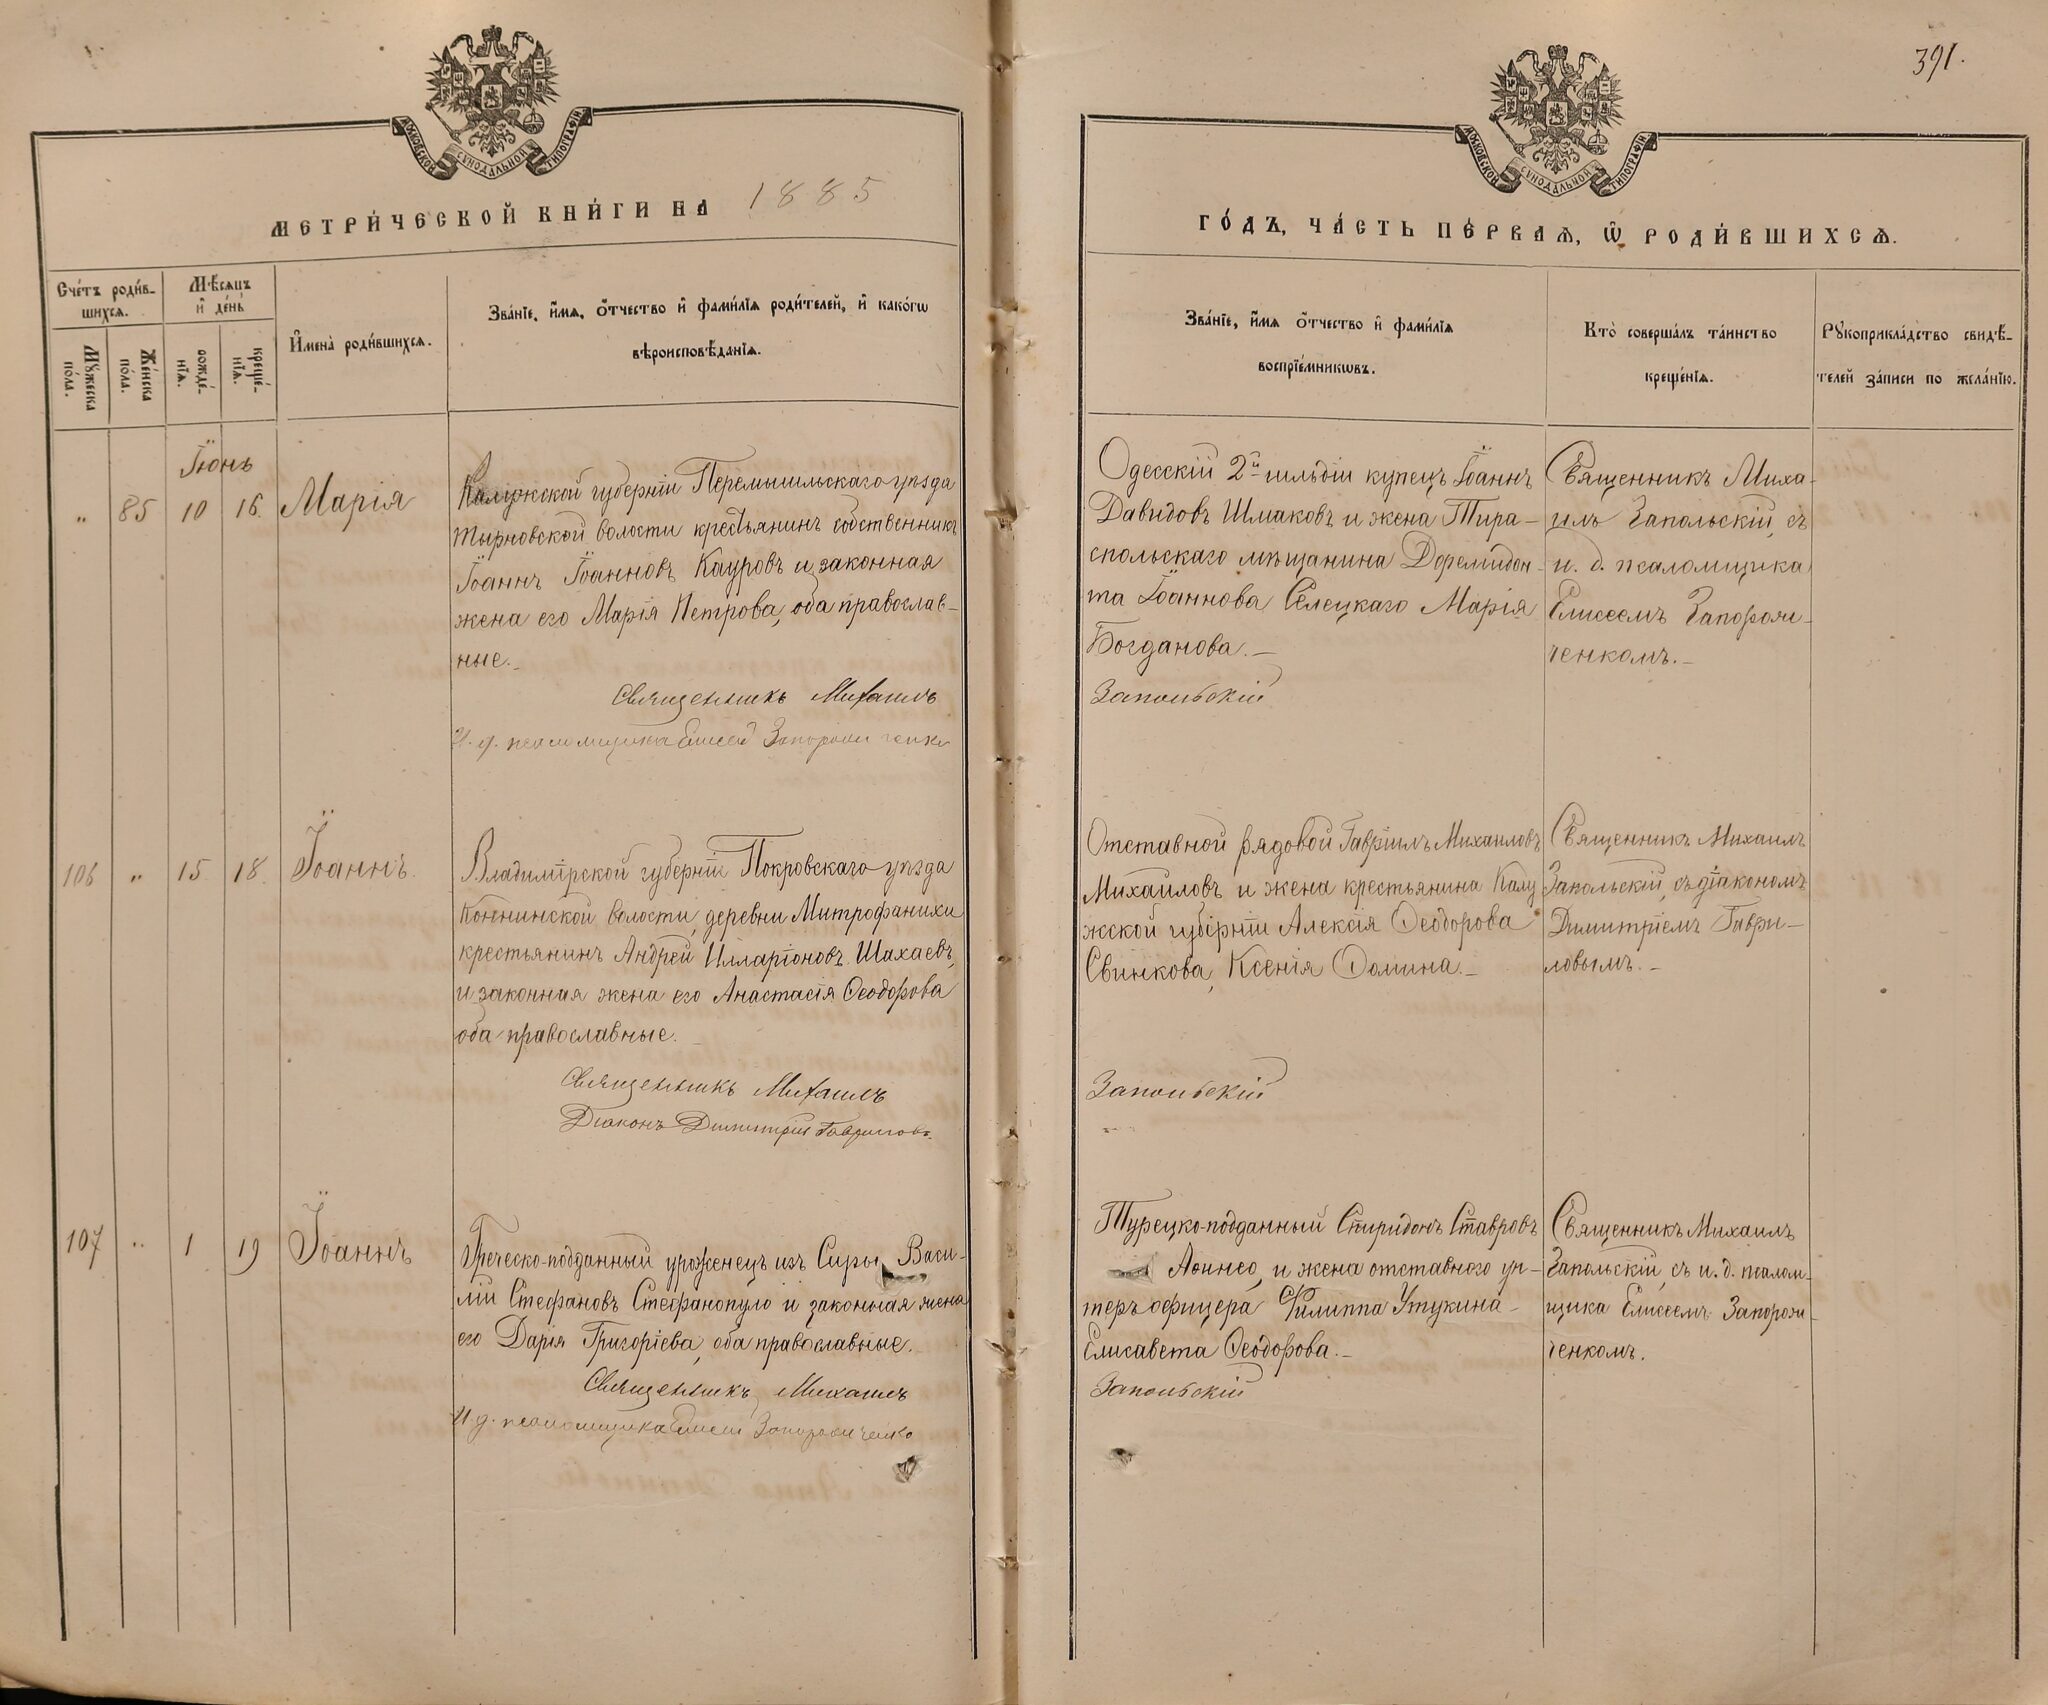 391.
МОСКОВСКОЙ СѴНОДАЛЬНОЙ ТИПОГРАФІИ
МОСКОВСКОЙ СѴНОДАЛЬНОЙ ТИПОГРАФІИ
МЕТРИ́ЧЕСКОЙ КНИ́ГИ НА 1885
ГО́ДЪ, ЧА́СТЬ ПЕ́РВАѦ, Ѡ РОДИ́ВШИХСѦ.
Счéтъ роди́в-
шихсѧ.
Мꙋжеска
по́ла.
Же́нска
по́ла.
Мѣ́сѧцъ
и҆ де́нь
рожде́-
нїѧ.
креще́-
нїѧ.
И҆мена̀ роди́вшихсѧ.
Зва́нїе, и҆́мѧ, ѻ҆́тчество и҆ фами́лїѧ роди́телей, и҆ како́гѡ
вѣроисповѣ́данїѧ.
Зва́нїе, и҆́мѧ ѻ҆́тчество и҆ фами́лїѧ
воспрїе́мникѡвъ.
Кто̀ соверша́лъ та́инство
креще́нїѧ.
Рꙋкоприкла́дство свидѣ́-
телей за́писи по жела́нїю.
Іюнь
" 85 10 16. Марія
Калужской губерніи Перемышльскаго уѣзда
Тырновской волости крестьянинъ собственникъ
Іоаннъ Іоанновъ Кауровъ и законная
жена его Марія Петрова, оба православ-
ные.
Священникъ Михаилъ
И. д. псаломщика Елисей Запорожченко
Одесскій 2й гильдіи купецъ Іоаннъ
Давидовъ Шмаковъ и жена Тира-
спольскаго мѣщанина Доремидон-
та Іоаннова Селецкаго Марія
Богданова.
Запольскій
Священникъ Миха-
илъ Запольскій, съ
и. д. псаломщика
Елисеемъ Запорож-
ченкомъ.
106 " 15 18. Іоаннъ.
Владимірской губерніи Покровскаго уѣзда
волости, деревни Митрофанихи
крестьянинъ Андрей Илларіоновъ Шахаевъ,
и законная жена его Анастасія Ѳеодорова
оба православные.
Священникъ Михаилъ
Діаконъ Димитрій Гавриловъ.
Отставной рядовой Гавріилъ Михаиловъ
Михайловъ и жена крестьянина Калу
жской губерніи Алексія Ѳеодорова
Свинкова, Ксенія Ѳомина.
Запольскій
Священникъ Михаилъ
Запольскій, съ діакономъ
Димитріемъ Гаври-
ловымъ.
107 " 1 19 Іоаннъ
Греческо-подданный уроженецъ изъ Сиры, Васи-
лій Стефановъ Стефанопуло и законная жена
его Дарія Григоріева, оба православные.
Священникъ, Михаилъ
И. д. псаломщика Елисей Запорожченко
Турецко-подданный Спиридонъ Ставровъ
и жена отставного ун-
теръ офицера Филиппа Утукина
Елисавета Ѳеодорова.
Запольскій
Священникъ Михаилъ
Запольскій, съ и. д. псалом-
щика Елисеемъ Запорож-
ченкомъ.